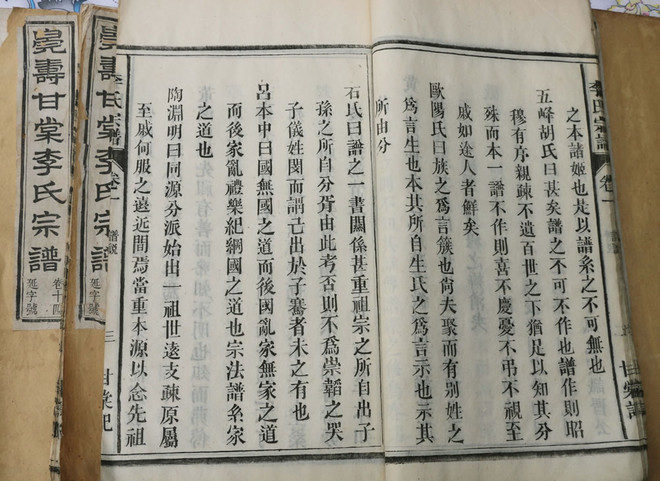 李氏宗譜 卷一
之本諸姬也是以譜系之不可無也
五峰胡氏曰甚矣譜之不可不作也譜作則昭
穆有序親疎不遺百世之下猶足以知其分
殊而本一譜不作則喜不慶憂不弔不視至
戚如途人者鮮矣
歐陽氏曰族之爲言簇也尙夫聚而有别姓之
爲言生也本其所自生氏之爲言示也示其
所由分
石氏曰譜之一書關係甚重祖宗之所自出子
孫之所自分胥由此考否則不爲崇韜之哭
子儀姓閔而謂己出於子騫者未之有也
呂本中曰國無國之道而後國亂家無家之道
而後家亂禮樂紀綱國之道也宗法譜系家
之道也
陶淵明曰同源分派始出一祖世遠支疎原屬
至戚何服之遠近間焉當重本源以念先祖
李氏宗譜 卷一 譜說 三 甘棠記
壽甘棠李氏宗譜
延字號
壽甘棠李氏宗譜
卷十四
延字號